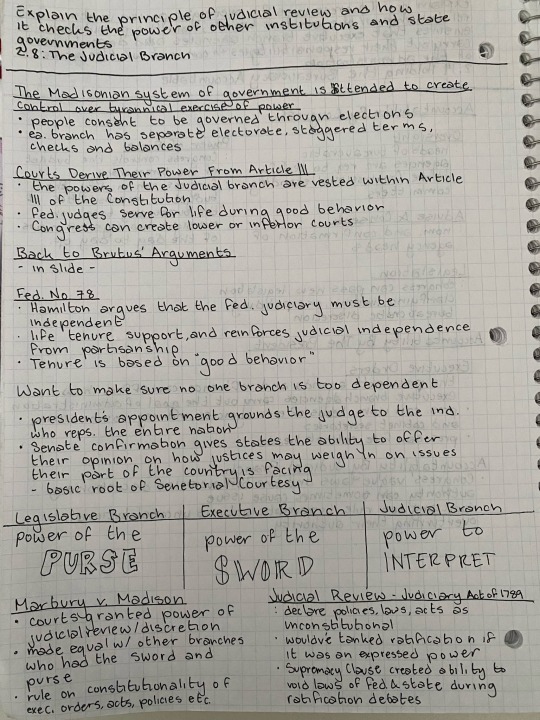 Explain the principle of judicial review and how
it checks the power of other institutions and state
governments
2.8: The Judicial Branch
The Madisonian system of government is attended to create
control over tyrannical exercise of power
· people consent to be governed through elections
· ea. branch has separate electorate, staggered terms,
checks and balances
Courts Derive Their Power From Article III
· the powers of the Judicial branch are vested within Article
III of the Constitution
· Fed. judges serve for life during good behavior
· Congress can create lower or inferior courts
Back to Brutus' Arguments
- in slide -
Fed. No. 78
· Hamilton argues that the fed. judiciary must be
independent
· life tenure support, and reinforces judicial independence
from partisanship
· Tenure is based on "good behavior"
Want to make sure no one branch is too dependent
· president's appointment grounds the judge to the ind.
who reps. the entire nation
· Senate confirmation gives states the ability to offer
their opinion on how justices may weigh in on issues
their part of the country is facing
- basic root of Senetorial Courtesy
Legislative Branch | Executive Branch | Judicial Branch
power of the | power of the | power to
PURSE | SWORD | INTERPRET
Marbury v. Madison
· courts granted power of
judicial review/discretion
· made equal w/ other branches
who had the sword and
purse
· rule on constitutionality of
exec. orders, acts, policies etc.
Judicial Review - Judiciary Act of 1789
: declare policies, laws, acts as
unconstitutional
· would've tanked ratification if
it was an expressed power
· Supremacy Clause created ability to
void laws of fed & state during
ratification debates